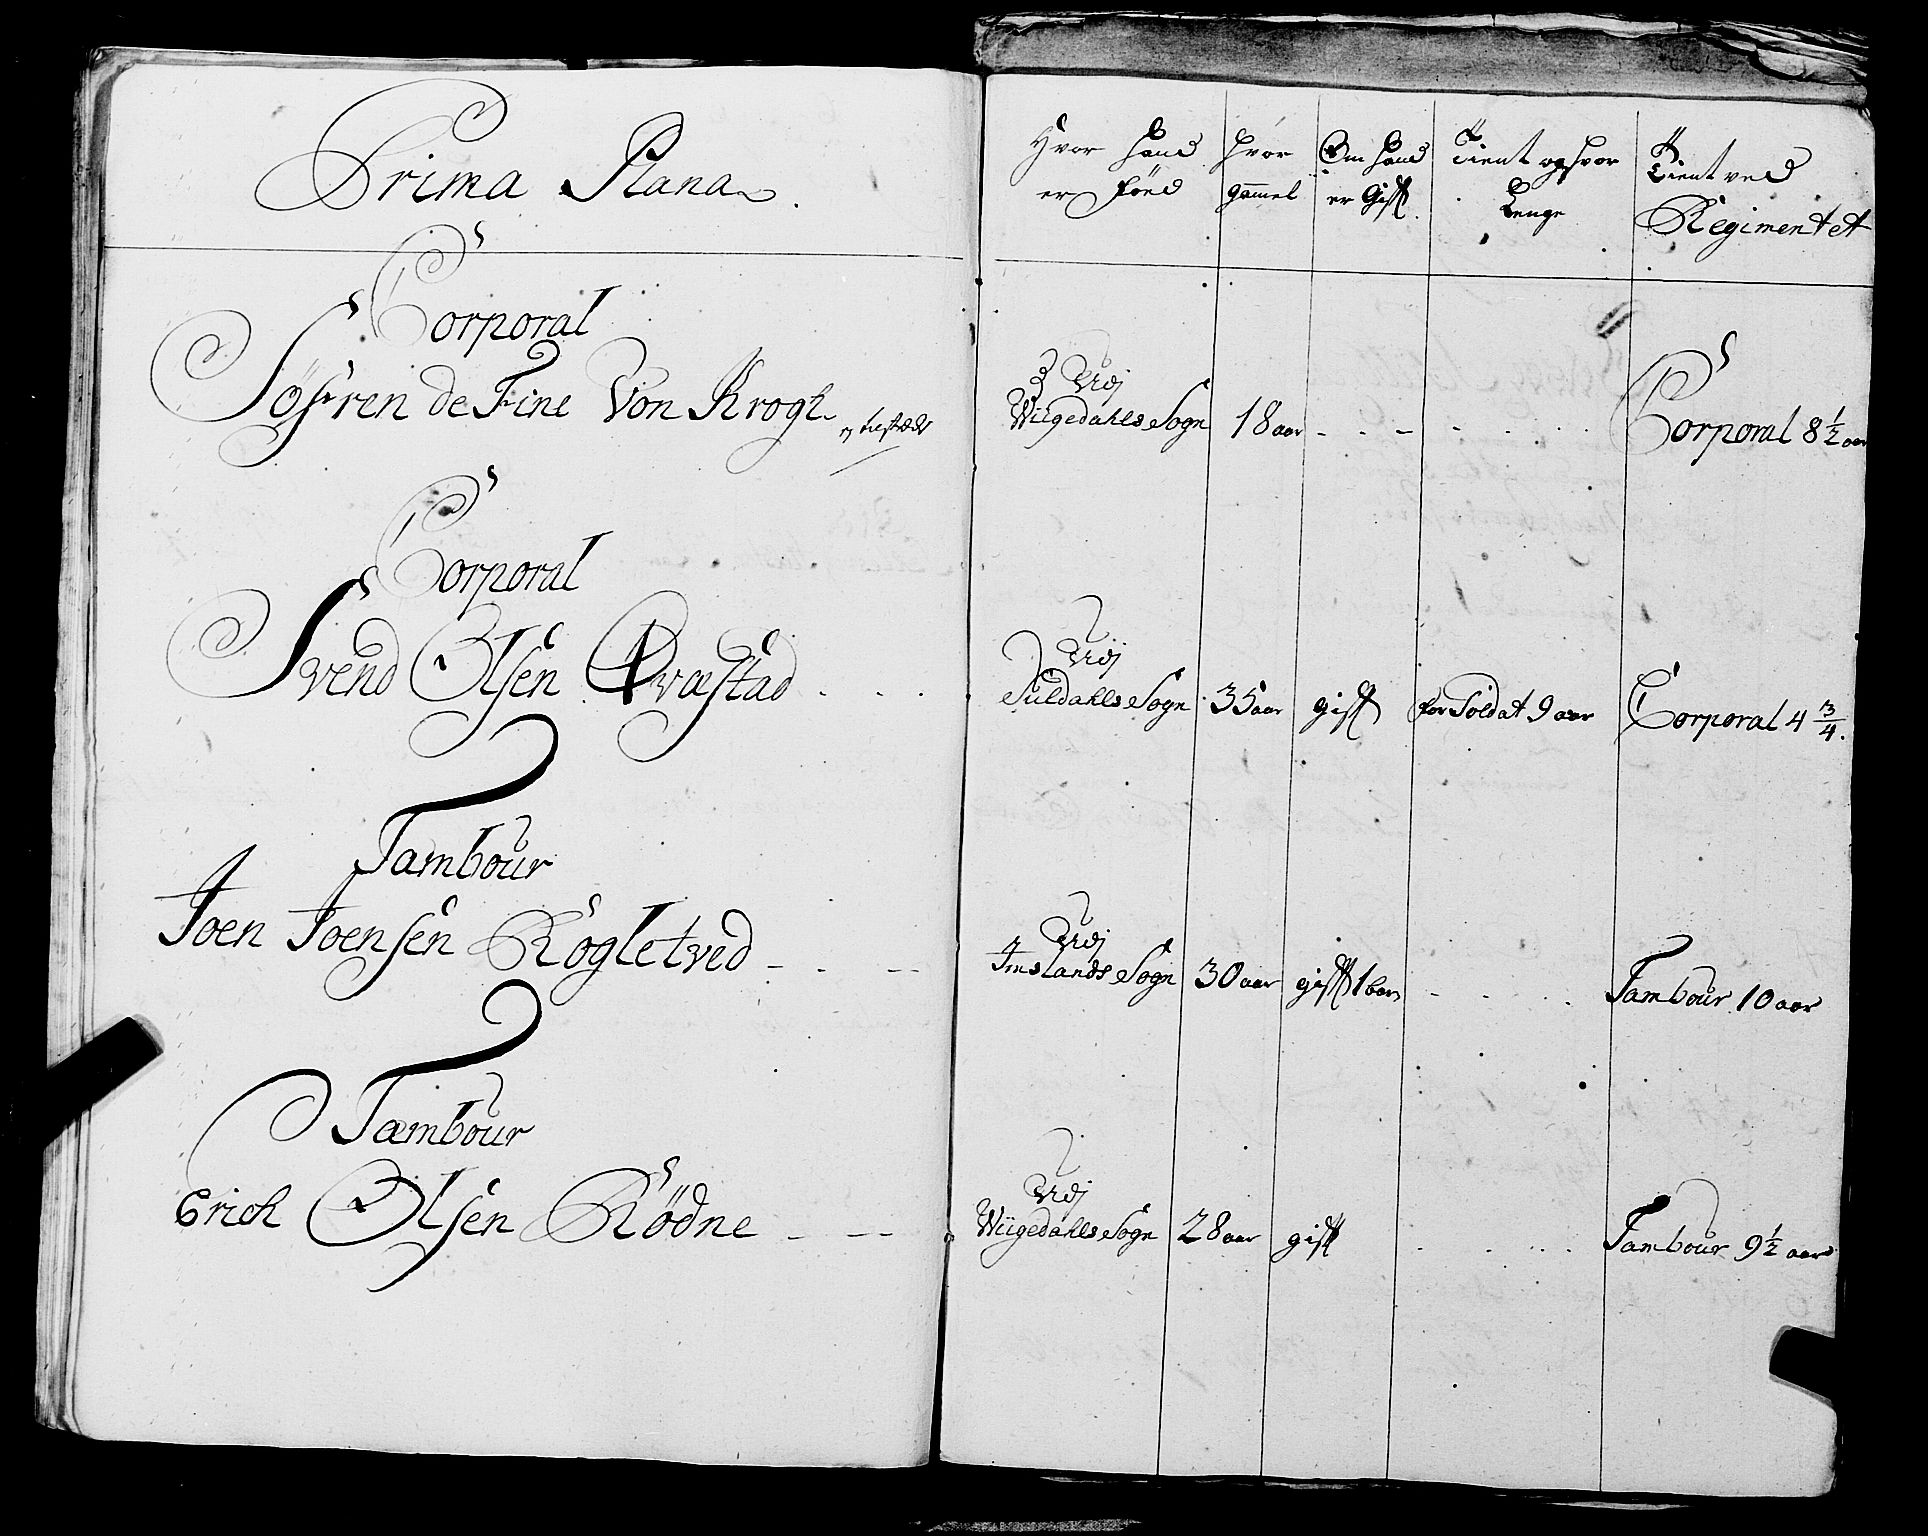 Prima Plana.
Hvor hand er föed
hvor gamel
Om hand er Gift.
Tient og hvor Lenge
Tient ved Regimentet
Corporal
Søfren de Fine Von Krogh
Udj Wiigedahls Sogn 18 aar - - - - Corporal 8 1/2 aar
Corporal
Svend Olsen Qvæstad . . .
Udj Suldahls Sogn 35 aar gift for Soldat 9 aar Corporal 4 3/4.
Tambour
Joen Joensen Kogletved - - -
Udj Imslands Sogn 30 aar gift 1 barn - - - Tambour 10 aar
Tambour
Erich Olsen Rödne - - -
Udj Wiigedahls Sogn 28 aar gift . . . . Tambour 9 1/2 aar